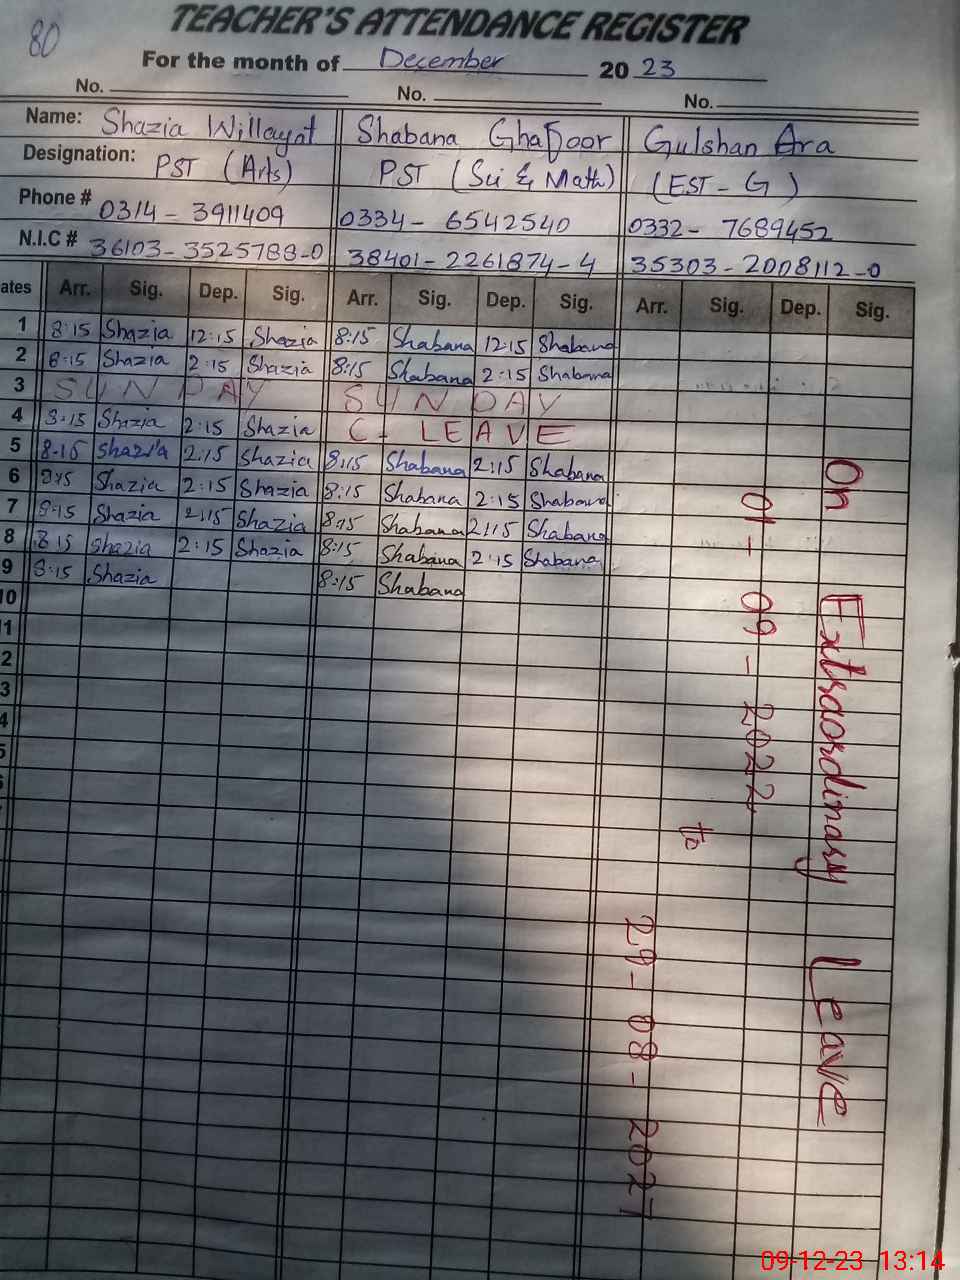 80
TEACHER'S ATTENDANCE REGISTER
For the month of December 20 23
No. No. No.
Name: Shazia Willaynt Shabana Ghafoor Gulshan Ara
Designation: PST (Arts) PST (Sci & Math) (EST - G)
Phone # 0314 - 3911409 0334 - 6542540 0332 - 7689452
N.I.C # 36103-3525788-0 38401-2261874-4 35303-2008112-0
ates Arr. Sig. Dep. Sig. Arr. Sig. Dep. Sig. Arr. Sig. Dep. Sig.
1 8:15 Shazia 12:15 Shazia 8:15 Shabana 12:15 Shabana
2 8:15 Shazia 2:15 Shazia 8:15 Shabana 2:15 Shabana
3 SUNDAY SUNDAY
4 8:15 Shazia 2:15 Shazia C. LEAVE
5 8:15 Shazia 2:15 Shazia 8:15 Shabana 2:15 Shabana
6 8:15 Shazia 2:15 Shazia 8:15 Shabana 2:15 Shabana
7 8:15 Shazia 2:15 Shazia 8:15 Shabana 2:15 Shabana
8 8:15 Shazia 2:15 Shazia 8:15 Shabana 2:15 Shabana
9 8:15 Shazia 8:15 Shabana
10
11
2
3
4
5
On Extraordinary Leave
01-09-2022
to
29-08-2027
09-12-23 13:14